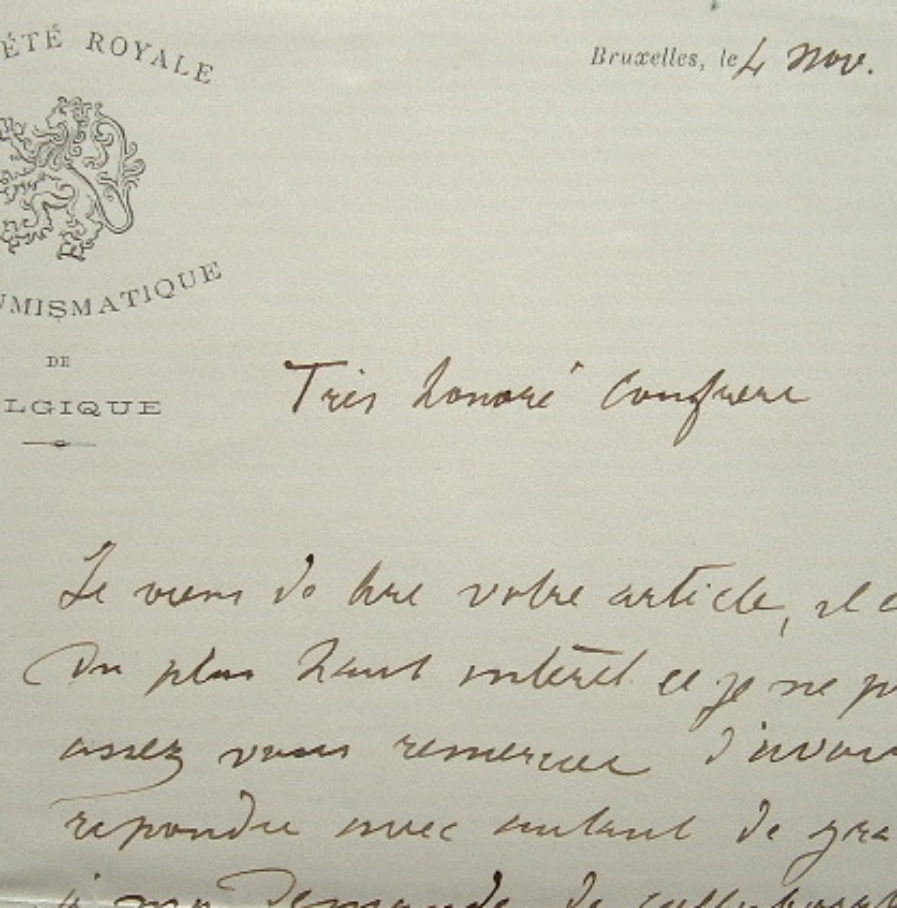 ÉTÉ ROYALE
Bruxelles, le 4 Nov.
UMISMATIQUE
DE
LGIQUE
Très honoré Confrere
Je viens de lire votre article, il e
du plus haut intérêt et je ne p
assez vous remercier d'avoir
repondu avec autant de gra
à ma demande de collaborat